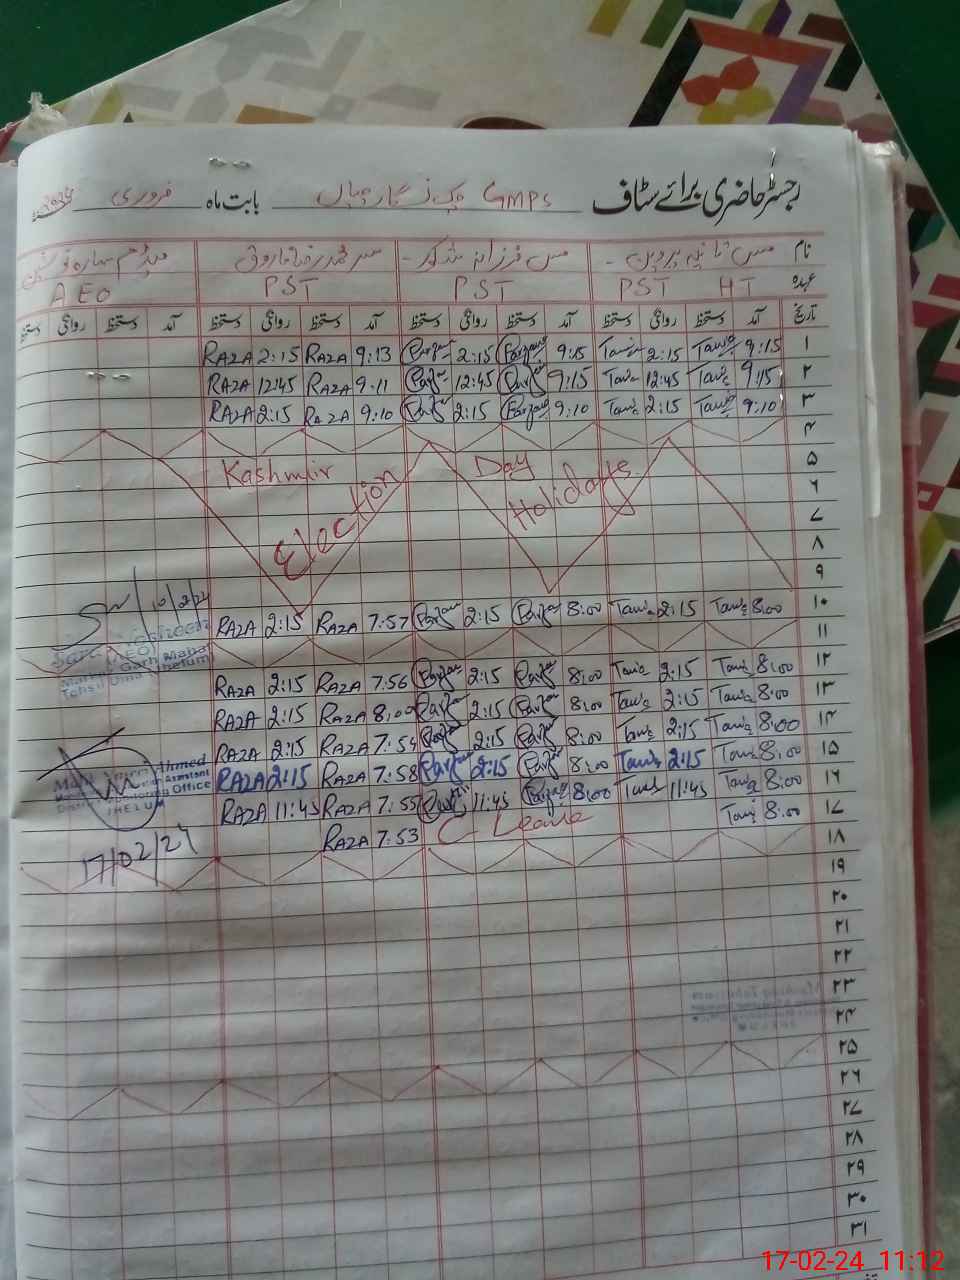 رجسٹر حاضری برائے سٹاف GMPS چک نگارچیاں بابت ماہ فروری 2024
نام مس ثانیہ پروین - مس فرزانہ شکور - سر محمد رضا فاروق میڈم سارہ نوشین
عہدہ HT PST PST PST AEO
تاریخ آمد دستخط روانگی دستخط آمد دستخط روانگی دستخط آمد دستخط روانگی دستخط آمد دستخط روانگی دستخط
۱ 9:15 2:15 9:15 2:15 9:13 RAZA 2:15 RAZA
۲ 9:15 12:45 9:15 12:45 9:11 RAZA 12:45 RAZA
۳ 9:10 2:15 9:10 2:15 9:10 RAZA 2:15 RAZA
۴
۵ Kashmir Day
۶ Election Holidays
۷
۸
۹
۱۰ 8:00 2:15 8:00 2:15 7:57 RAZA 2:15 RAZA
۱۱
۱۲ 8:00 2:15 8:00 2:15 7:56 RAZA 2:15 RAZA
۱۳ 8:00 2:15 8:00 2:15 8:00 RAZA 2:15 RAZA
۱۴ 8:00 2:15 8:00 2:15 7:54 RAZA 2:15 RAZA
۱۵ 8:00 2:15 8:00 2:15 7:58 RAZA 2:15 RAZA
۱۶ 8:00 11:45 8:00 11:45 7:55 RAZA 11:45 RAZA
۱۷ 8:00 C-Leave 7:53 RAZA
۱۸
۱۹
۲۰
۲۱
۲۲
۲۳
۲۴
۲۵
۲۶
۲۷
۲۸
۲۹
۳۰
۳۱
AEO
Garh Mahal
Jhelum
Ahmed
Monitoring Office
JHELUM
17/02/24
17-02-24 11:12